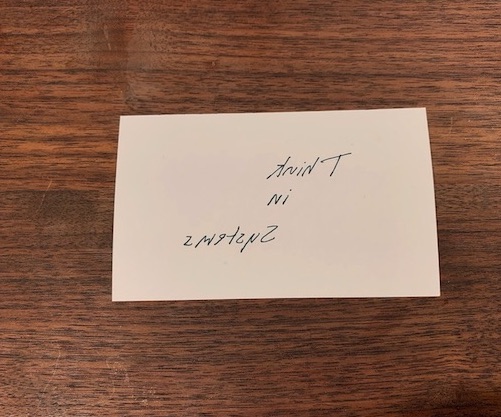 Think
in
Systems